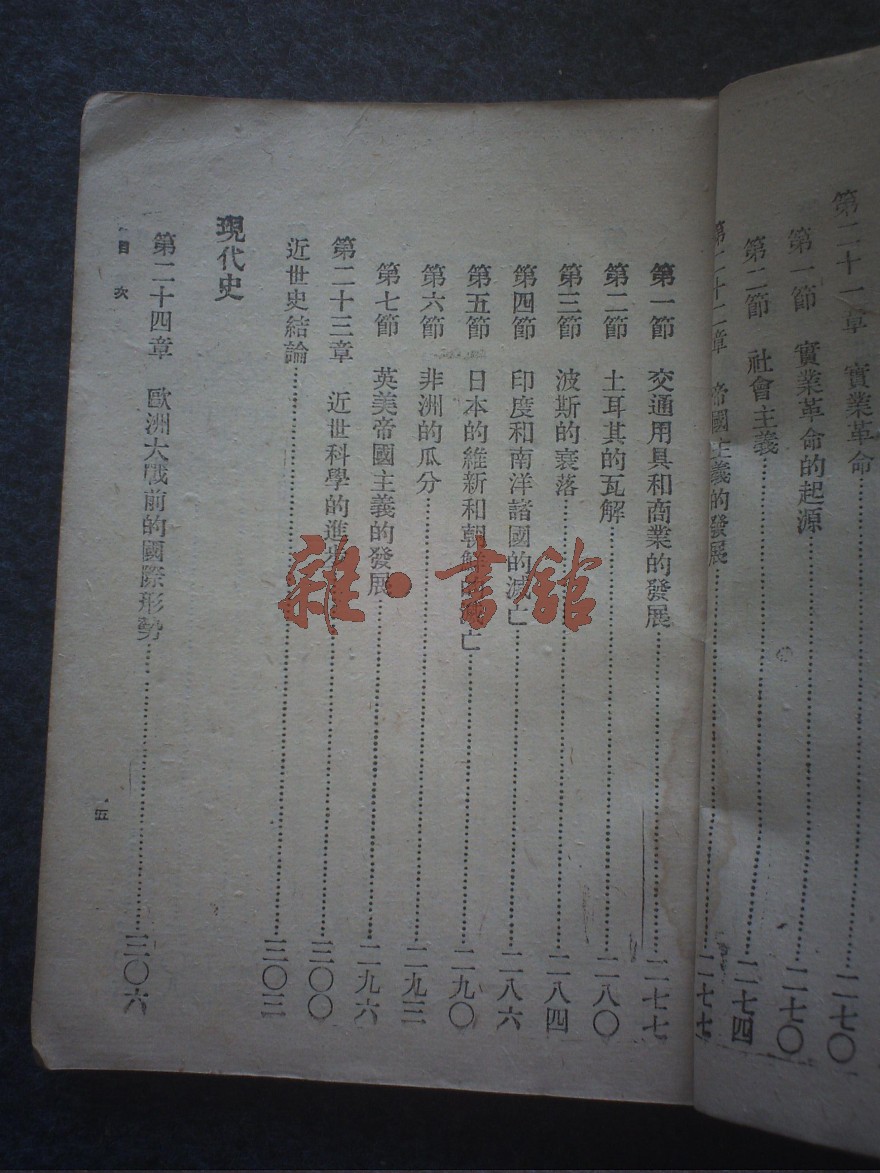 第二十一章　實業革命……二七〇
第一節　實業革命的起源……二七〇
第二節　社會主義……二七四
第二十二章　帝國主義的發展……二七七
第一節　交通用具和商業的發展……二七七
第二節　土耳其的瓦解……二八〇
第三節　波斯的衰落……二八四
第四節　印度和南洋諸國的滅亡……二八六
第五節　日本的維新和朝鮮的亡……二九〇
第六節　非洲的瓜分……二九三
第七節　英美帝國主義的發展……二九六
第二十三章　近世科學的進步……三〇〇
近世史結論……三〇三
現代史
第二十四章　歐洲大戰前的國際形勢……三〇六
目次
五
雜·書館